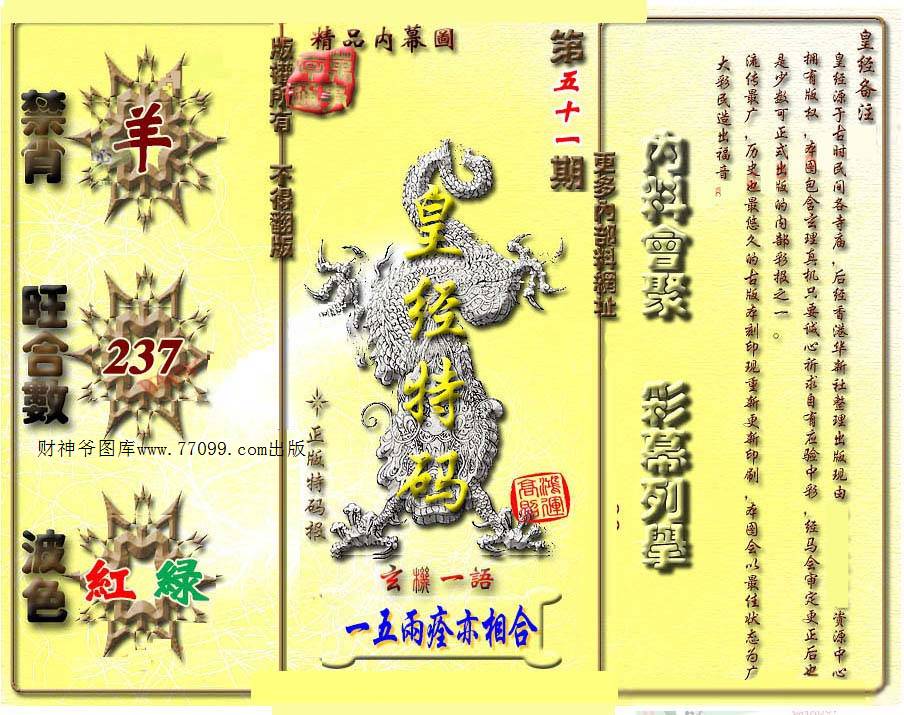 皇经备注
皇经源于古时民间各寺庙,后经香港华新社整理出版现由 资源中心
拥有版权,本图包含玄理真机只要诚心祈求自有应验中彩,经马会审定更正后也
是少数可正式出版的内部彩报之一。
流传最广,历史也最悠久的古版本刻印现重新更新印刷,本图会以最佳状态为广
大彩民造出福音
内料會聚 彩幕列擧
更多內部料網址
第五十一期
精品内幕圖
版權所有 不得翻版
皇经特码
正版特码报
鴻運高照
玄機一語
一五兩痊亦相合
禁肖
羊
旺合數
237
财神爷图库www.77099.com出版
波色
紅 綠